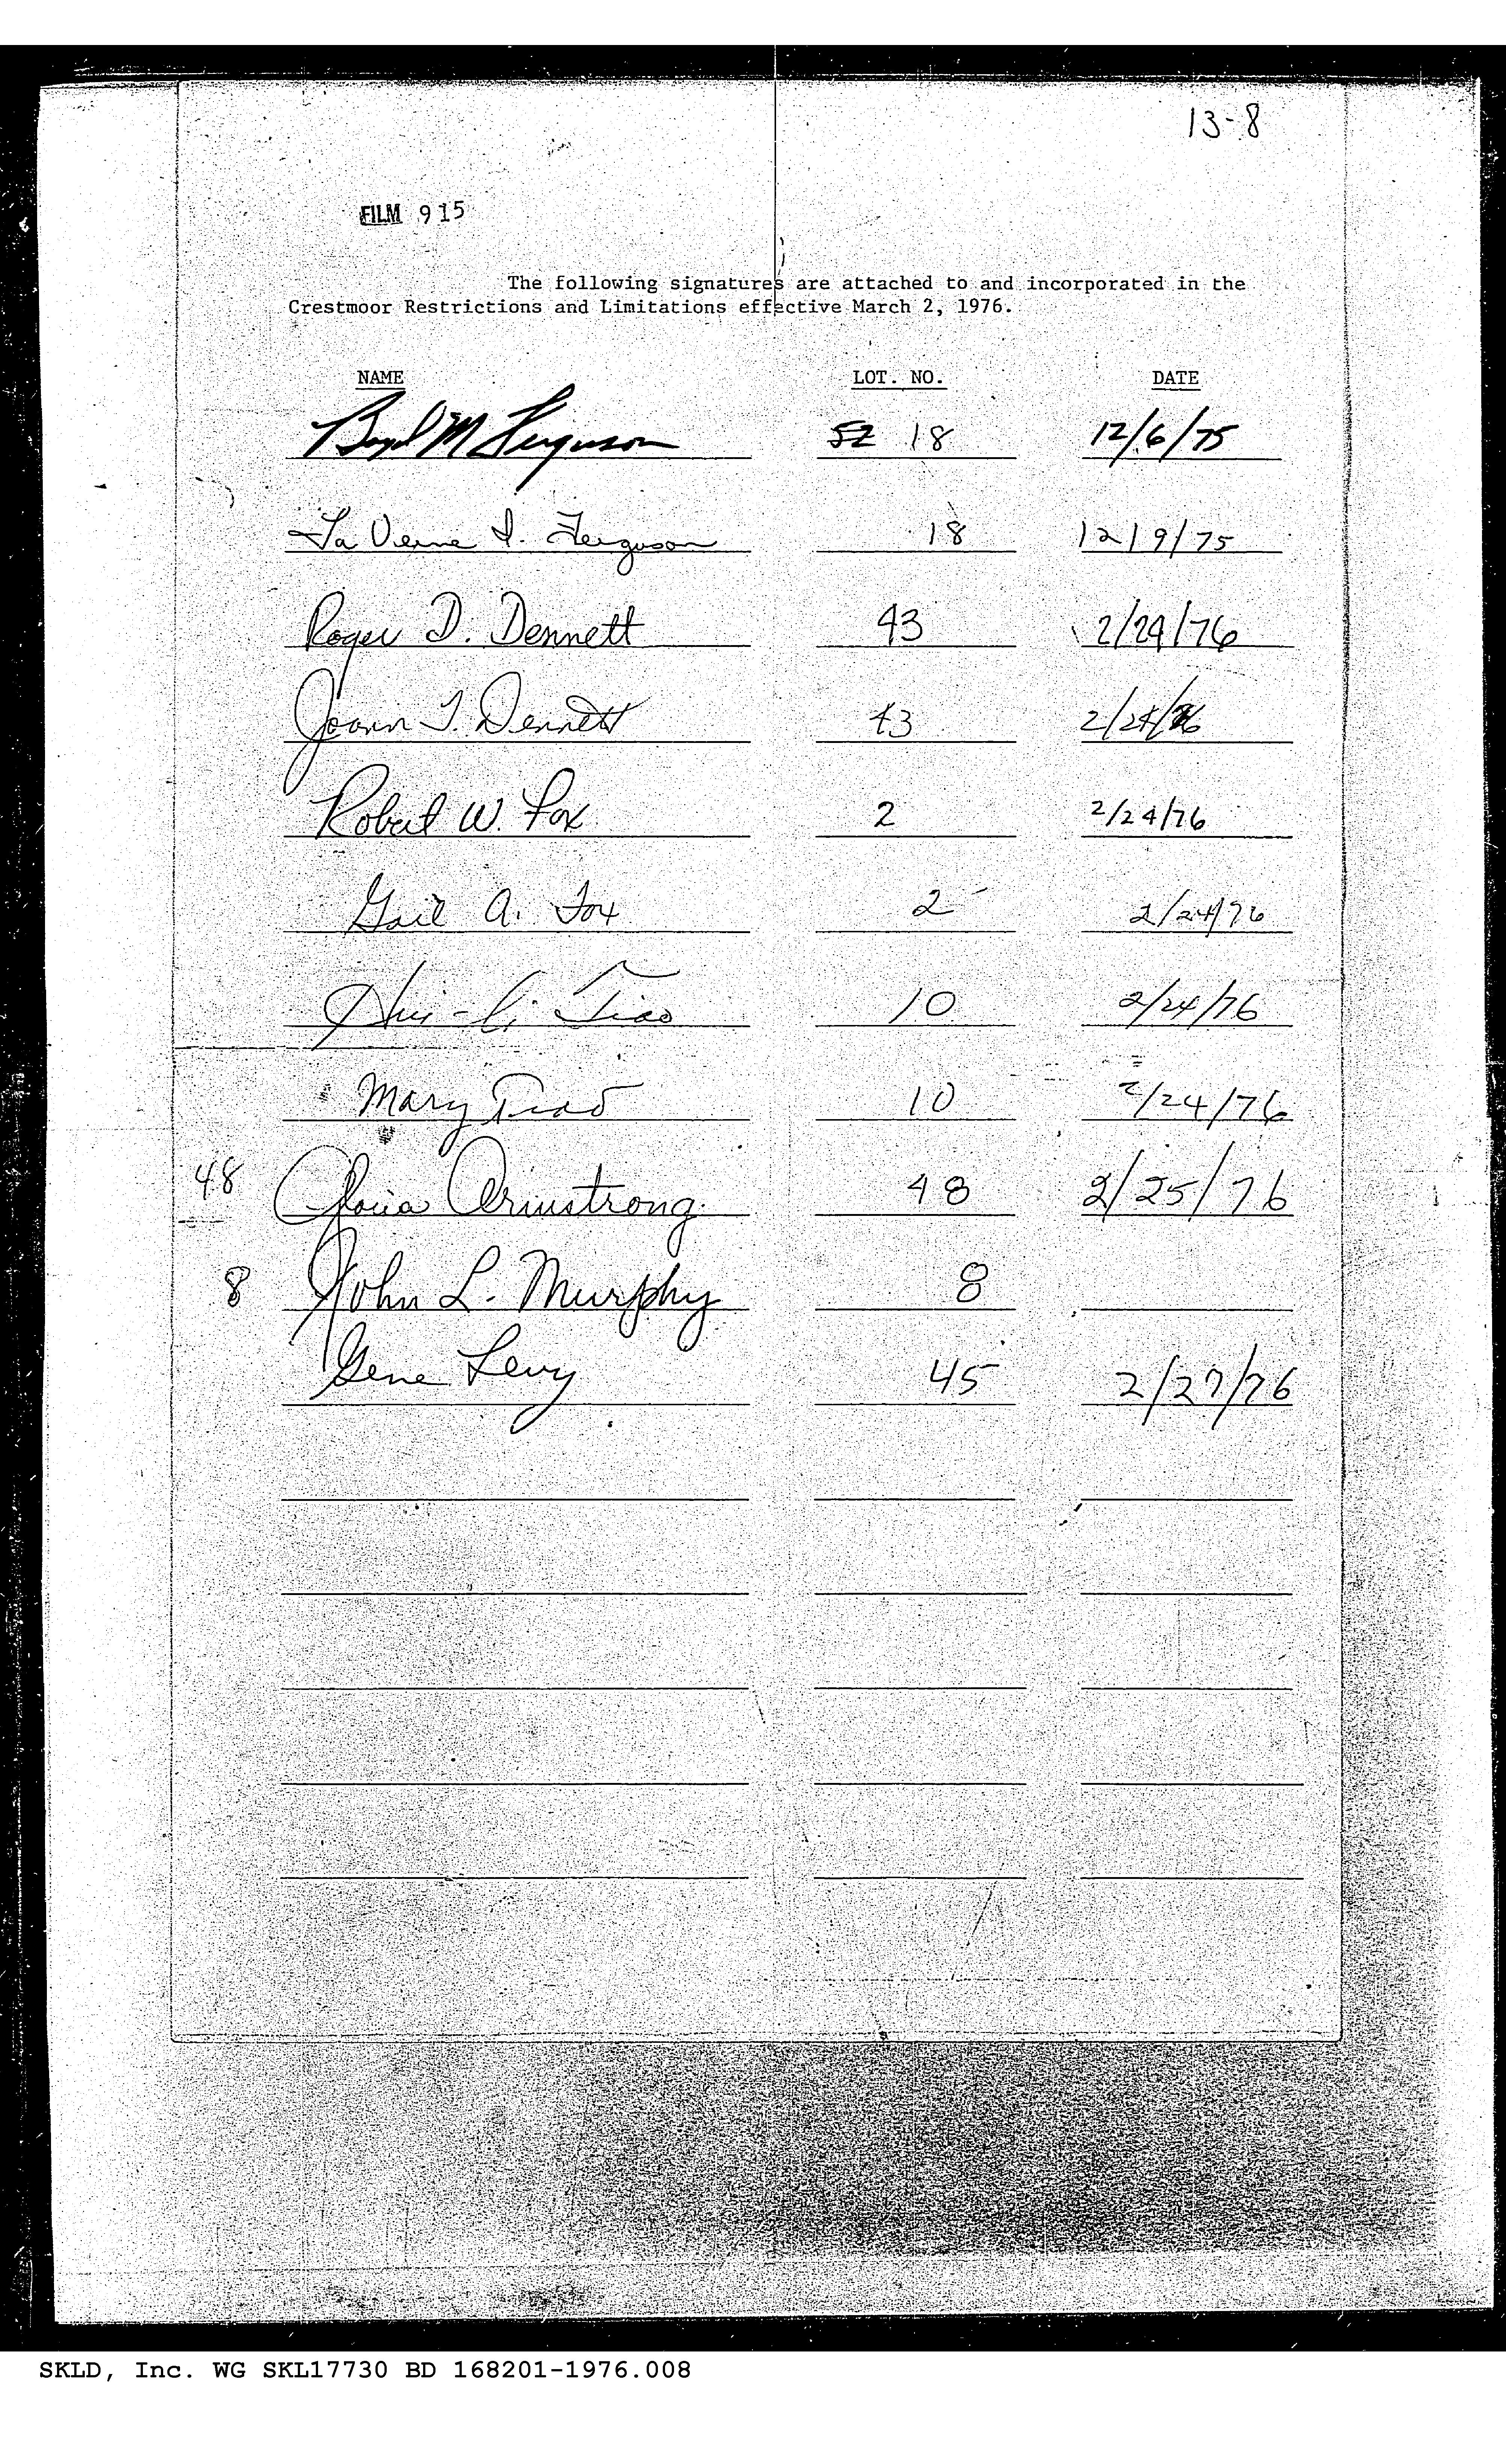 13-8
FILM 915
The following signatures are attached to and incorporated in the
Crestmoor Restrictions and Limitations effective March 2, 1976.
NAME LOT. NO. DATE
Boyd M Ferguson 52 18 12/6/75
La Verne I. Ferguson 18 12/9/75
Roger D. Dennett 43 2/24/76
Joann T. Dennett 43 2/24/76
Robert W. Fox 2 2/24/76
Gail A. Fox 2 2/24/76
Hui-li Tiao 10 2/24/76
Mary Tiao 10 2/24/76
48 Gloria Armstrong 48 2/25/76
8 John L. Murphy 8
Gene Levy 45 2/27/76
SKLD, Inc. WG SKL17730 BD 168201-1976.008